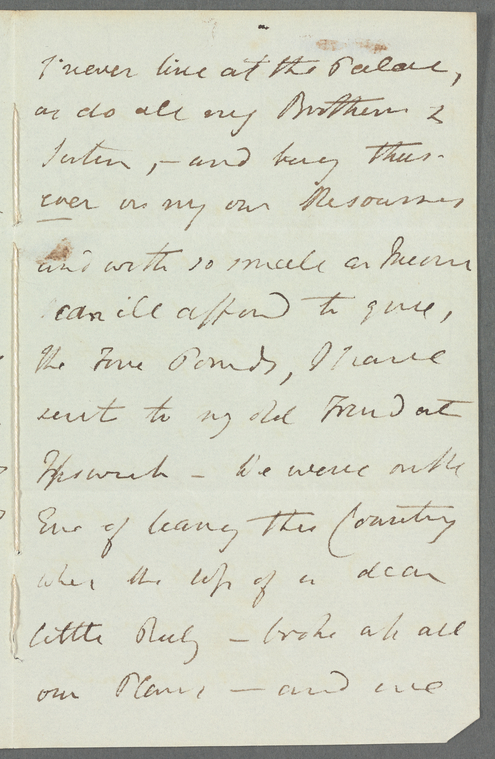 I never live at the Palace,
as do all my Brothers &
Sisters, – and being thus
ever on my own Resources
and with so small an Income
can ill afford to give,
the Five Pounds, I have
sent to my old Friend at
Ipswich – We were on the
Eve of leaving this Country
when the loss of a dear
little – broke up all
our Plans – and we